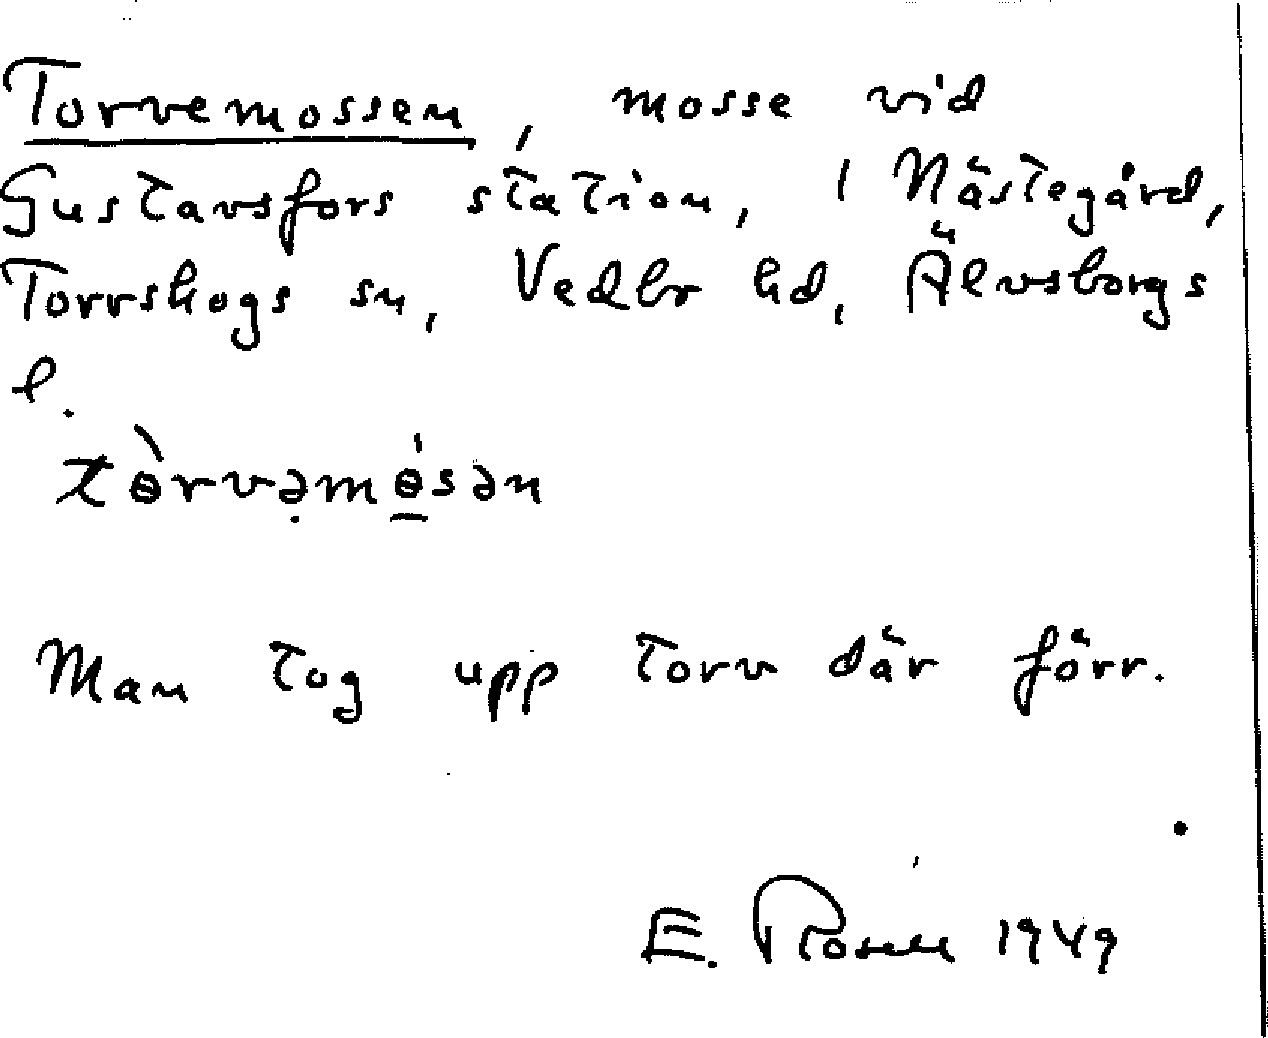 Torvemossen, mosse vid
Gustavsfors station, i Nästegård,
Torrskogs sn, Vedbo hd, Älvsborgs
l.
tɵ̀rvə̣mɵ̱́sən
Man tog upp torv där förr.
E. Rosén 1949